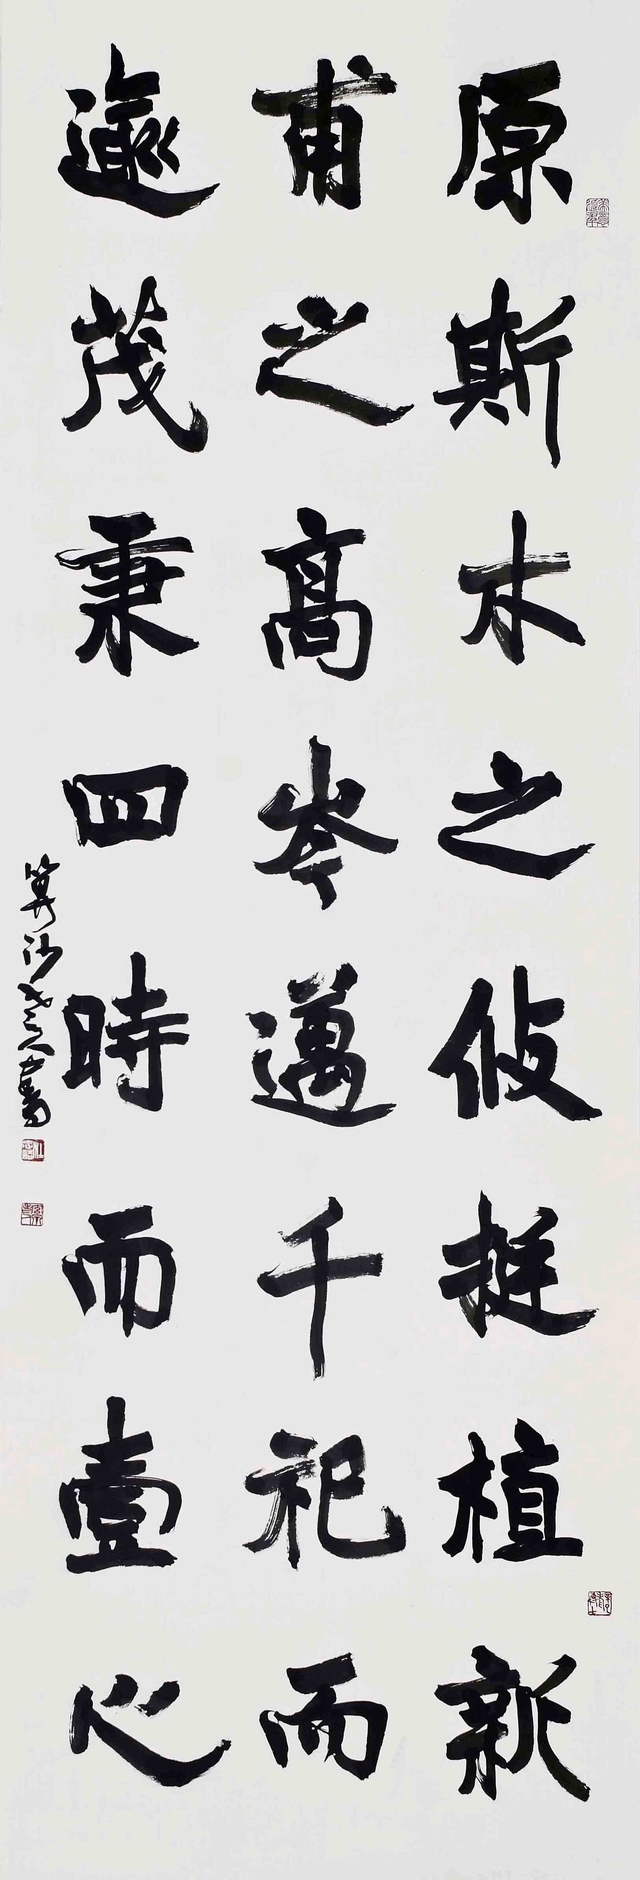 原斯木之攸挺植新
甫之高岑邁千祀而
逾茂秉四時而壹心
算沙